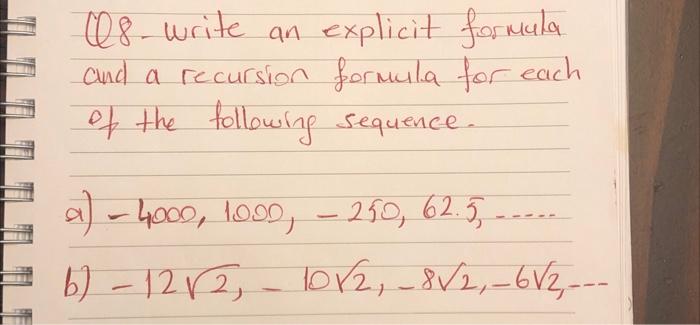 Q8 - write an explicit formula
and a recursion formula for each
of the following sequence.
a) - 4000, 1000, - 250, 62.5, -----
b) - 12√2, - 10√2, -8√2, -6√2, ---